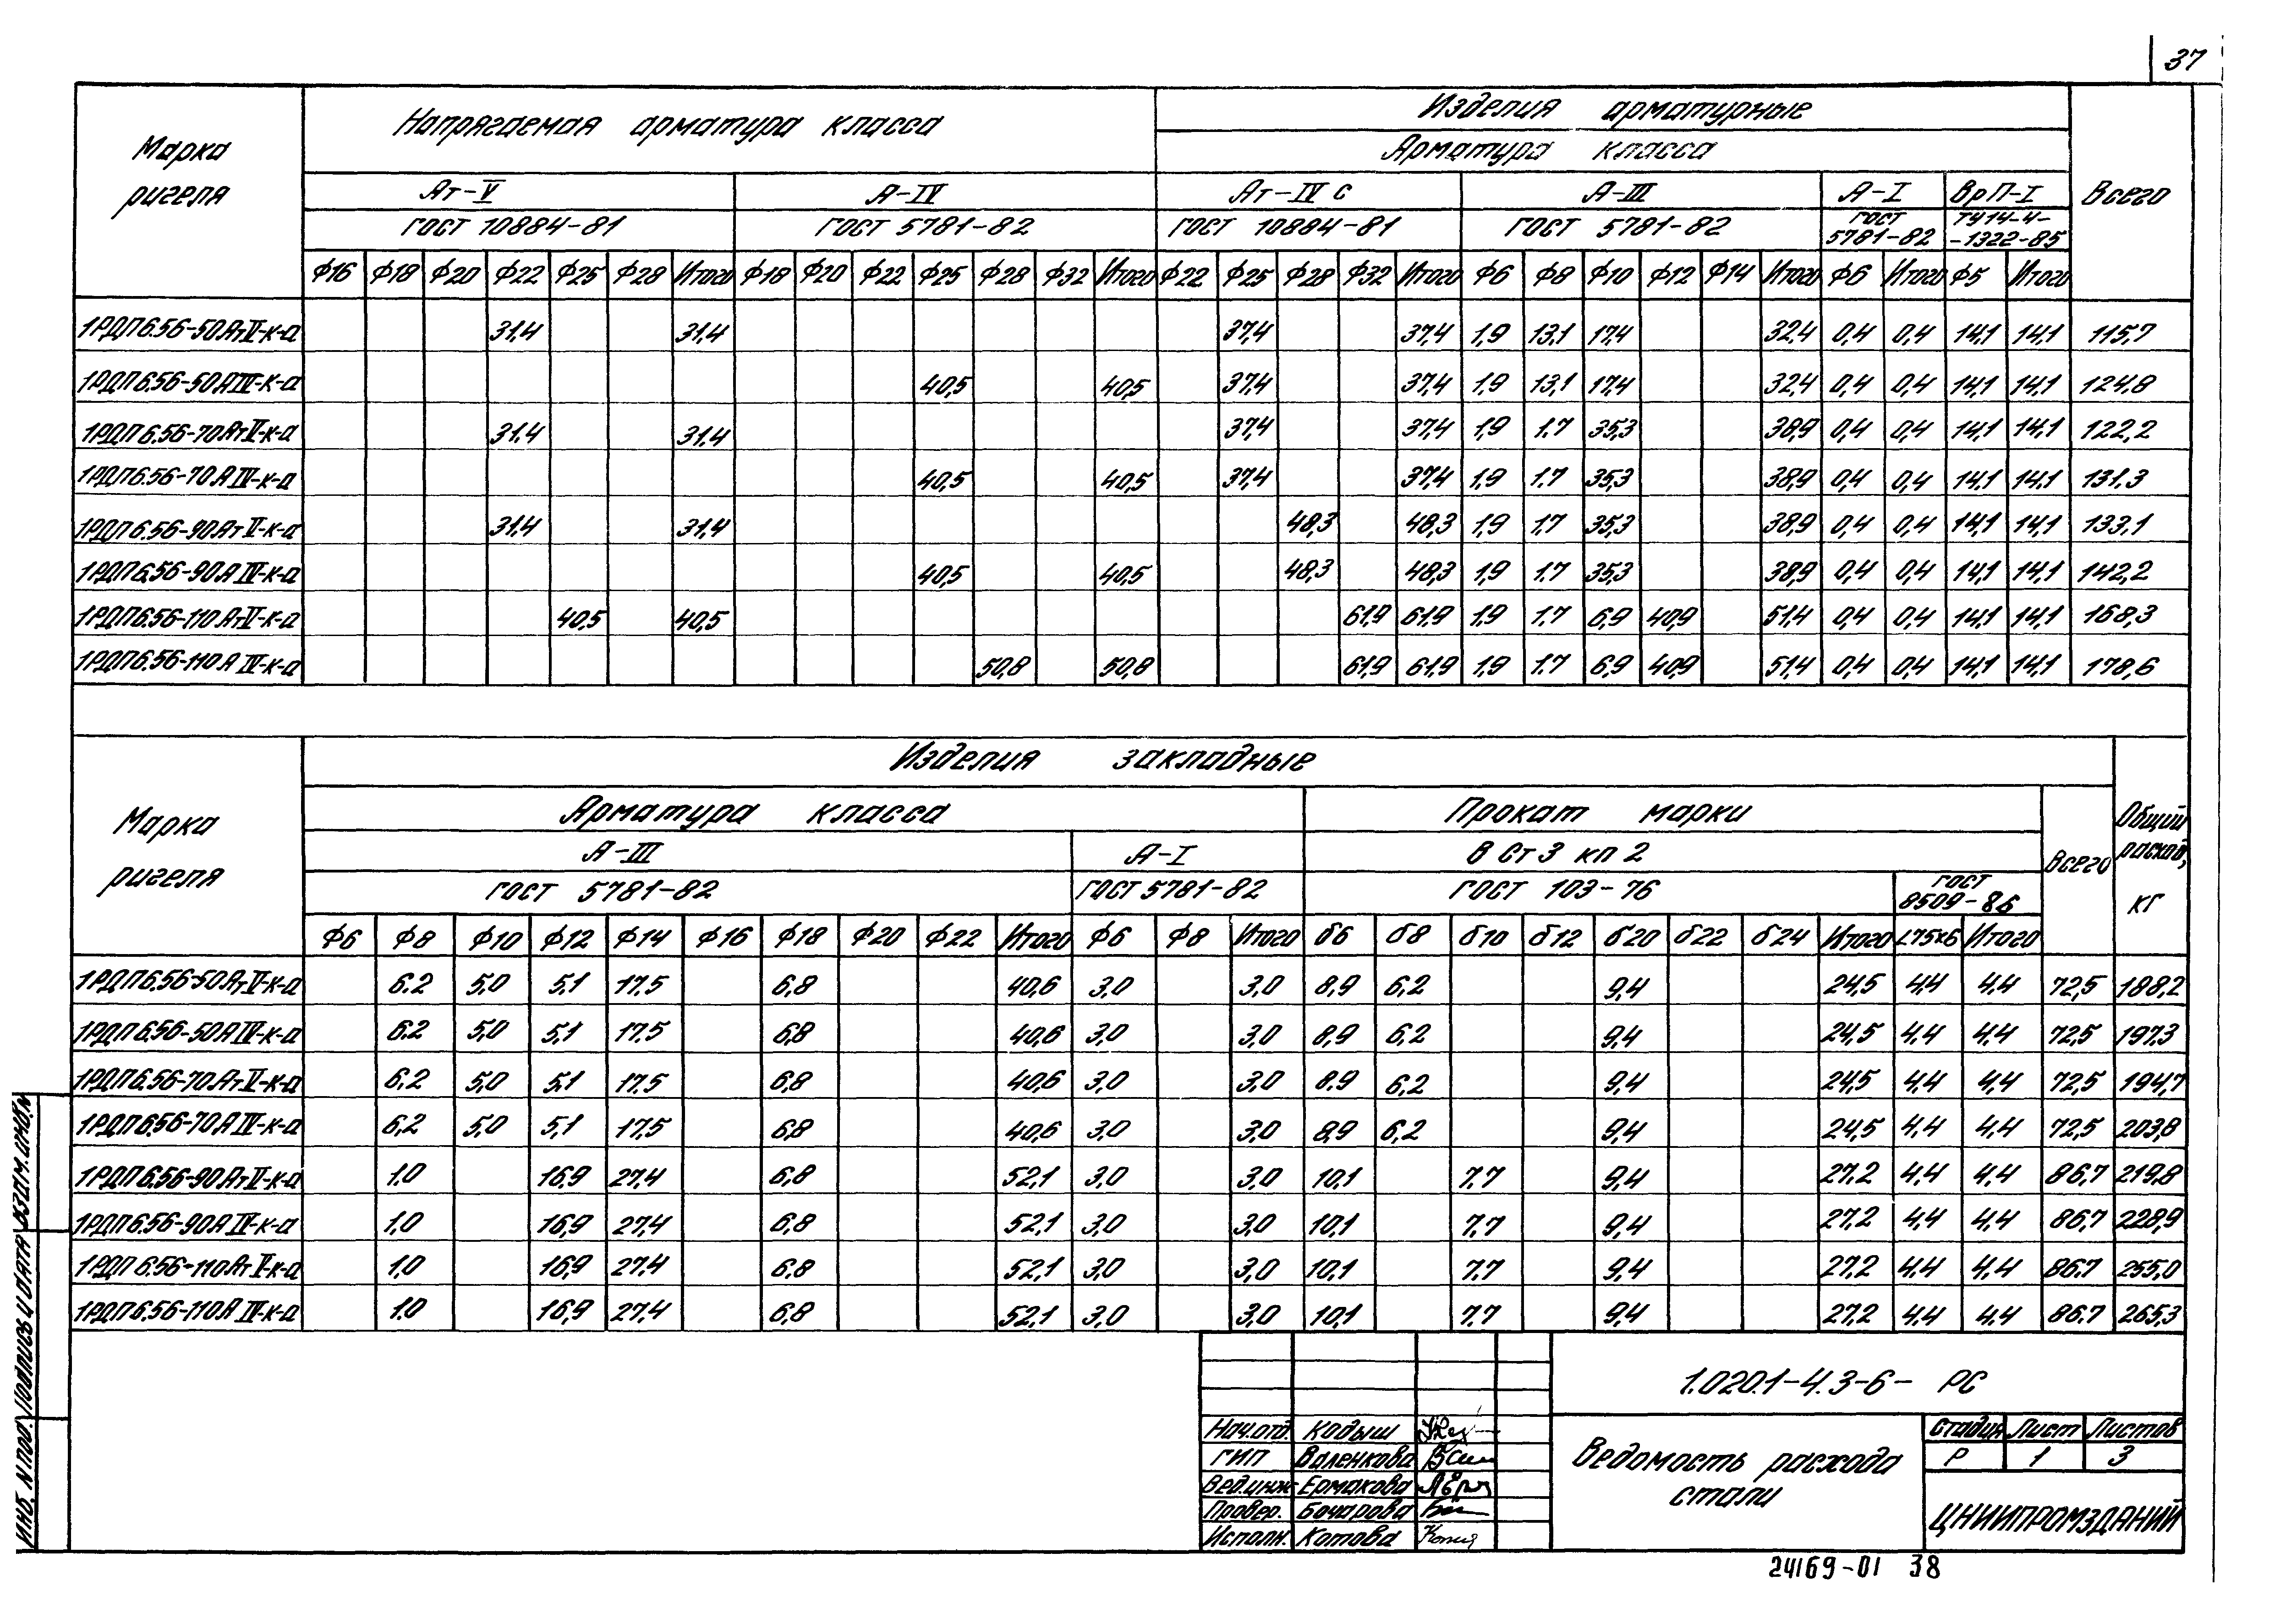 37
Марка ригеля
Напрягаемая арматура класса
Изделия арматурные
Арматура класса
Всего
Ат-V
А-IV
Ат-IV с
А-III
А-I
ВрП-I
ГОСТ 10884-81
ГОСТ 5781-82
ГОСТ 10884-81
ГОСТ 5781-82
ГОСТ 5781-82
ТУ14-4-
-1322-85
Ф16 Ф18 Ф20 Ф22 Ф25 Ф28 Итого Ф18 Ф20 Ф22 Ф25 Ф28 Ф32 Итого Ф22 Ф25 Ф28 Ф32 Итого Ф6 Ф8 Ф10 Ф12 Ф14 Итого Ф6 Итого Ф5 Итого
1РДП6.56-50АтV-к-а 31,4 31,4 37,4 37,4 1,9 13,1 17,4 32,4 0,4 0,4 14,1 14,1 115,7
1РДП6.56-50АIV-к-а 40,5 40,5 37,4 37,4 1,9 13,1 17,4 32,4 0,4 0,4 14,1 14,1 124,8
1РДП6.56-70АтV-к-а 31,4 31,4 37,4 37,4 1,9 1,7 35,3 38,9 0,4 0,4 14,1 14,1 122,2
1РДП6.56-70АIV-к-а 40,5 40,5 37,4 37,4 1,9 1,7 35,3 38,9 0,4 0,4 14,1 14,1 131,3
1РДП6.56-90АтV-к-а 31,4 31,4 48,3 48,3 1,9 1,7 35,3 38,9 0,4 0,4 14,1 14,1 133,1
1РДП6.56-90АIV-к-а 40,5 40,5 48,3 48,3 1,9 1,7 35,3 38,9 0,4 0,4 14,1 14,1 142,2
1РДП6.56-110АтV-к-а 40,5 40,5 61,9 61,9 1,9 1,7 6,9 40,9 51,4 0,4 0,4 14,1 14,1 168,3
1РДП6.56-110АIV-к-а 50,8 50,8 61,9 61,9 1,9 1,7 6,9 40,9 51,4 0,4 0,4 14,1 14,1 178,6
Марка ригеля
Изделия закладные
Арматура класса
Прокат марки
Всего
Общий расход, кг
А-III
А-I
В Ст 3 кп 2
ГОСТ 5781-82
ГОСТ 5781-82
ГОСТ 103-76
ГОСТ 8509-86
Ф6 Ф8 Ф10 Ф12 Ф14 Ф16 Ф18 Ф20 Ф22 Итого Ф6 Ф8 Итого δ6 δ8 δ10 δ12 δ20 δ22 δ24 Итого L75х6 Итого
1РДП6.56-50АтV-к-а 6,2 5,0 5,1 17,5 6,8 40,6 3,0 3,0 8,9 6,2 9,4 24,5 4,4 4,4 72,5 188,2
1РДП6.56-50АIV-к-а 6,2 5,0 5,1 17,5 6,8 40,6 3,0 3,0 8,9 6,2 9,4 24,5 4,4 4,4 72,5 197,3
1РДП6.56-70АтV-к-а 6,2 5,0 5,1 17,5 6,8 40,6 3,0 3,0 8,9 6,2 9,4 24,5 4,4 4,4 72,5 194,7
1РДП6.56-70АIV-к-а 6,2 5,0 5,1 17,5 6,8 40,6 3,0 3,0 8,9 6,2 9,4 24,5 4,4 4,4 72,5 203,8
1РДП6.56-90АтV-к-а 1,0 16,9 27,4 6,8 52,1 3,0 3,0 10,1 7,7 9,4 27,2 4,4 4,4 86,7 219,8
1РДП6.56-90АIV-к-а 1,0 16,9 27,4 6,8 52,1 3,0 3,0 10,1 7,7 9,4 27,2 4,4 4,4 86,7 228,9
1РДП6.56-110АтV-к-а 1,0 16,9 27,4 6,8 52,1 3,0 3,0 10,1 7,7 9,4 27,2 4,4 4,4 86,7 255,0
1РДП6.56-110АIV-к-а 1,0 16,9 27,4 6,8 52,1 3,0 3,0 10,1 7,7 9,4 27,2 4,4 4,4 86,7 265,3
1.020.1-4.3-6- РС
Нач.отд. Кодыш
ГИП Валенкова
Вед.инж. Ермакова
Провер. Бочарова
Исполн. Котова
Ведомость расхода
стали
Стадия Лист Листов
Р 1 3
ЦНИИПРОМЗДАНИЙ
24169-01 38
ИНВ. N ПОД. ПОДПИСЬ И ДАТА ВЗАМ.ИНВ.N